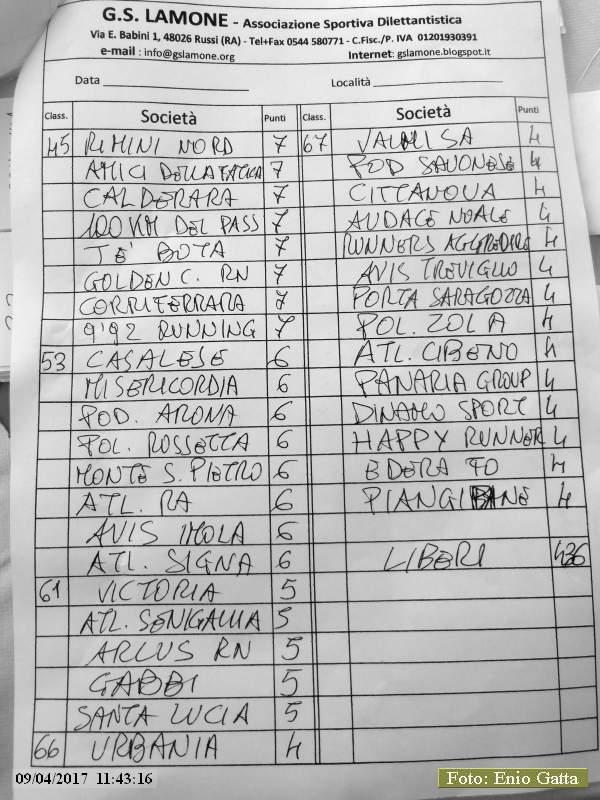 G.S. LAMONE - Associazione Sportiva Dilettantistica
Via E. Babini 1, 48026 Russi (RA) - Tel+Fax 0544 580771 - C.Fisc./P. IVA 01201930391
e-mail : info@gslamone.org Internet: gslamone.blogspot.it
Data ____________ Località ____________
Class. Società Punti Class. Società Punti
45 RIMINI NORD 7 67 VALLISA 4
AMICI DELLA FATICA 7 POD SAVONESE 4
CALDERARA 7 CITTANOVA 4
100 KM DEL PASS 7 AUDACE NOALE 4
TE' BOTA 7 RUNNERS AGGREDIRE 4
GOLDEN C. RN 7 AVIS TREVIGLIO 4
CORRIFERRARA 7 PORTA SARAGOZZA 4
9'92 RUNNING 7 POL. ZOLA 4
53 CASALESE 6 ATL. CIBENO 4
MISERICORDIA 6 PANARIA GROUP 4
POD. ARONA 6 DINAMO SPORT 4
POL. ROSSETTA 6 HAPPY RUNNER 4
MONTE S. PIETRO 6 EDERA FO 4
ATL. RA 6 PIANGIPANE 4
AVIS IMOLA 6
ATL. SIGNA 6 LIBERI 436
61 VICTORIA 5
ATL. SENIGALLIA 5
ARCUS RN 5
GABBI 5
SANTA LUCIA 5
66 URBANIA 4
09/04/2017 11:43:16
Foto: Enio Gatta